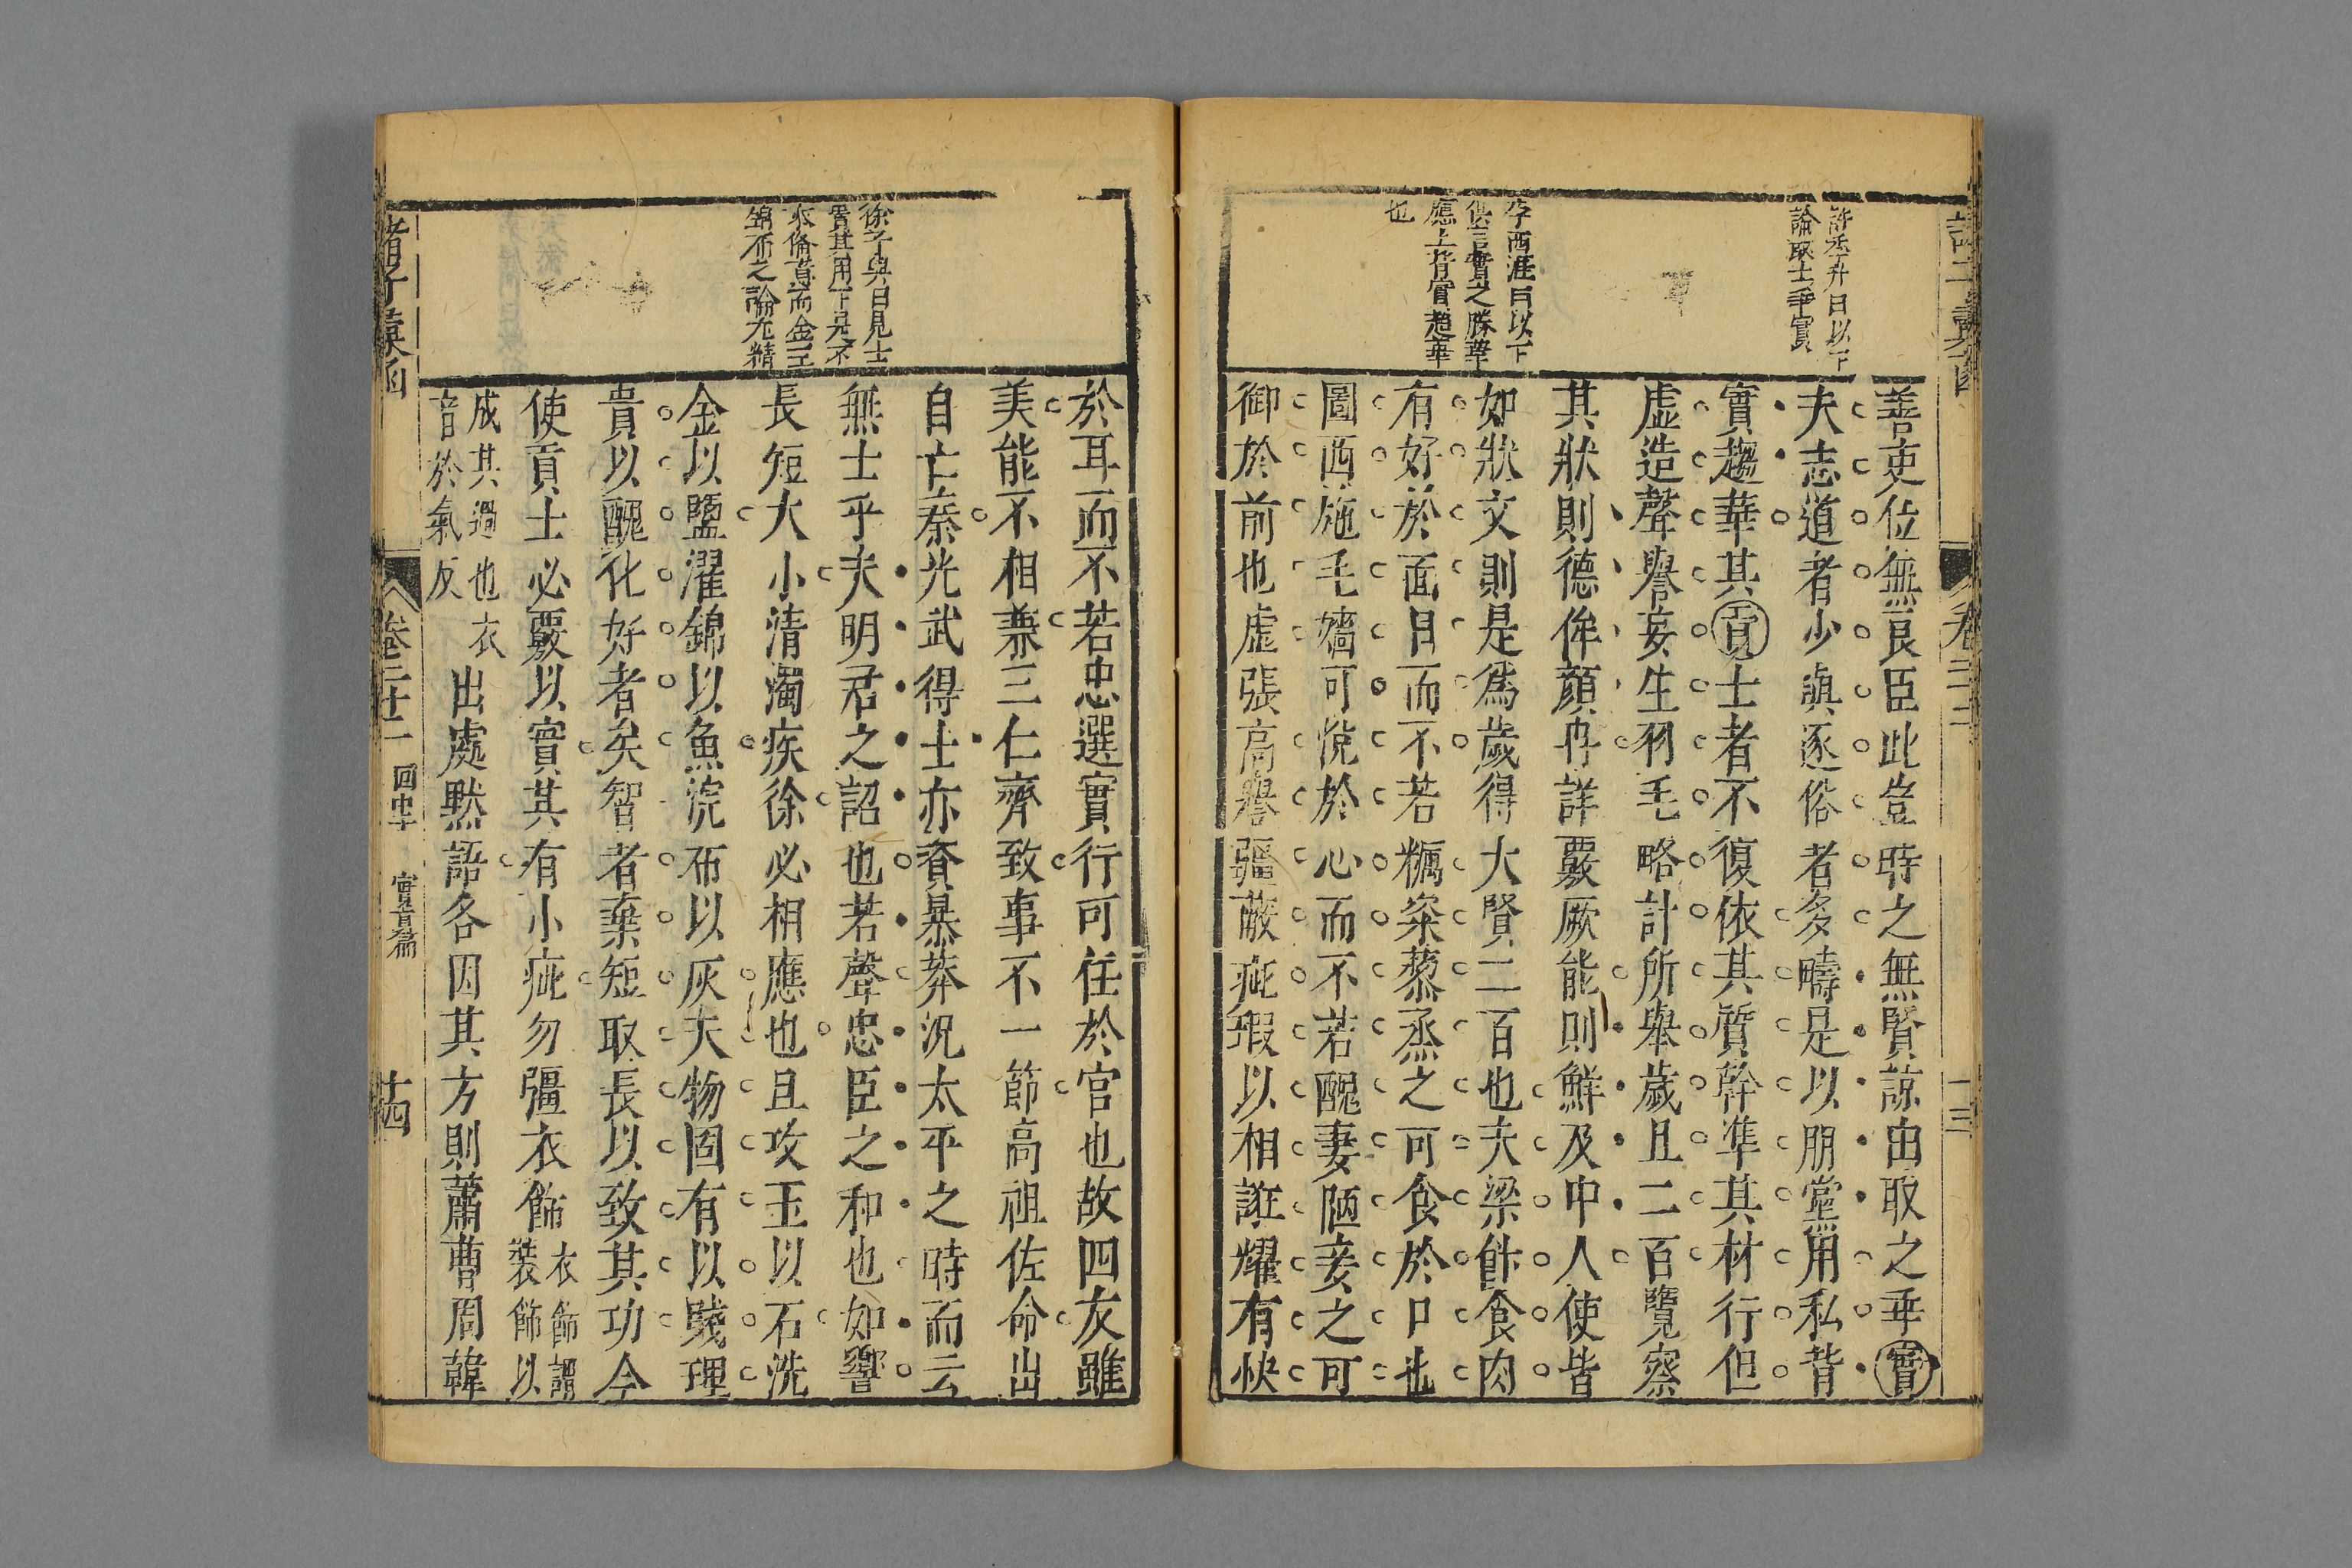 許丞升曰以下
論取士乖實
李西涯曰以下
俱言實之勝華
應上背實趨華
也
善吏位無良臣此豈時之無賢諒由取之乖實
夫志道者少與逐俗者多疇是以朋黨用私背
實趨華其貢士者不復依其質幹準其材行但
虛造聲譽妄生羽毛略計所舉歲且二百覽察
其狀則德侔顏冉詳覈厥能則鮮及中人使皆
如狀文則是爲歲得大賢二百也夫梁飿食肉
有好於面目而不若糲粢藜烝之可食於口也
圖西施毛嬙可悅於心而不若醜妻陋妾之可
御於前也虛張高譽彊蔽疵瑕以相誑耀有快
諸子彙函
卷二十二
十三
徐子與曰見士
貴其用下是不
求偹意而金玉
錦布之論尤精
於耳而不若忠選實行可任於官也故四友雖
美能不相兼三仁齊致事不一節高祖佐命出
自亡秦光武得士亦資暴莽況太平之時而云
無士乎夫明君之詔也若聲忠臣之和也如響
長短大小清濁疾徐必相應也且攻玉以石洗
金以鹽濯錦以魚浣布以灰夫物固有以賤理
貴以醜化好者矣智者棄短取長以致其功今
使貢士必覈以實其有小疵勿彊衣飾衣飾謂裝飾以
成其過也衣音於氣反出處默語各因其方則蕭曹周韓
諸子彙函
卷二十二
回中
實貢篇
十四